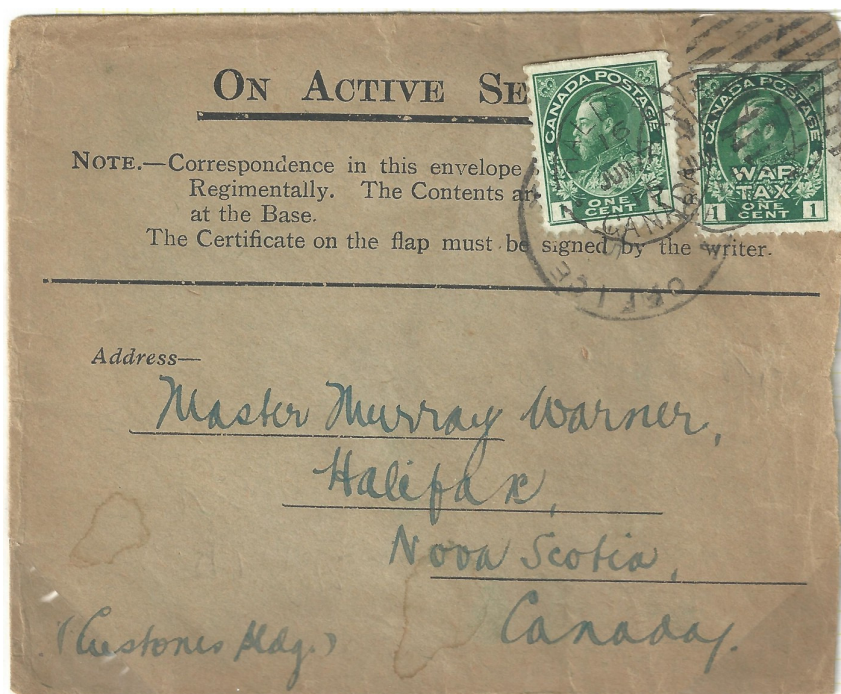 ON ACTIVE SE
NOTE.—Correspondence in this envelope
Regimentally. The Contents ar
at the Base.
The Certificate on the flap must be signed by the writer.
CANADA POSTAGE
1 ONE CENT 1
CANADA POSTAGE
WAR TAX
1 ONE CENT 1
JUN
CANADA
OFFICE
Address—
Master Murray Warner,
Halifax,
Nova Scotia,
Canada.
(Customs Bldg.)